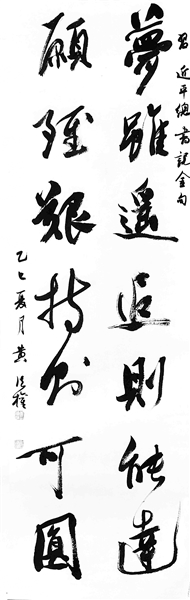 習近平總書記金句
夢雖遥追則能達
願雖艱持則可圓
乙巳夏月黄